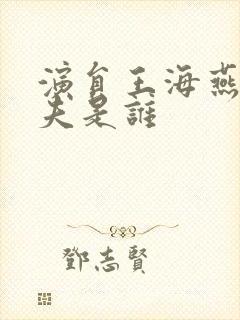 演員王海燕
夫是誰
鄧志賢